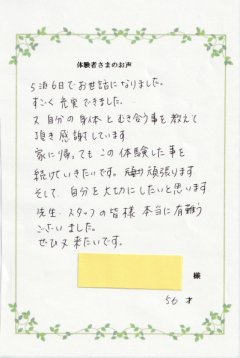 体験者さまのお声
5泊6日でお世話になりました。
すごく充実できました。
又自分の身体とむき合う事を教えて
頂き感謝しています
家に帰ってもこの体験した事を
続けていきたいです。頑張ります
そして、自分を大切にしたいと思います
先生・スタッフの皆様本当に有難う
ございました。
ぜひ又来たいです。
様
56才